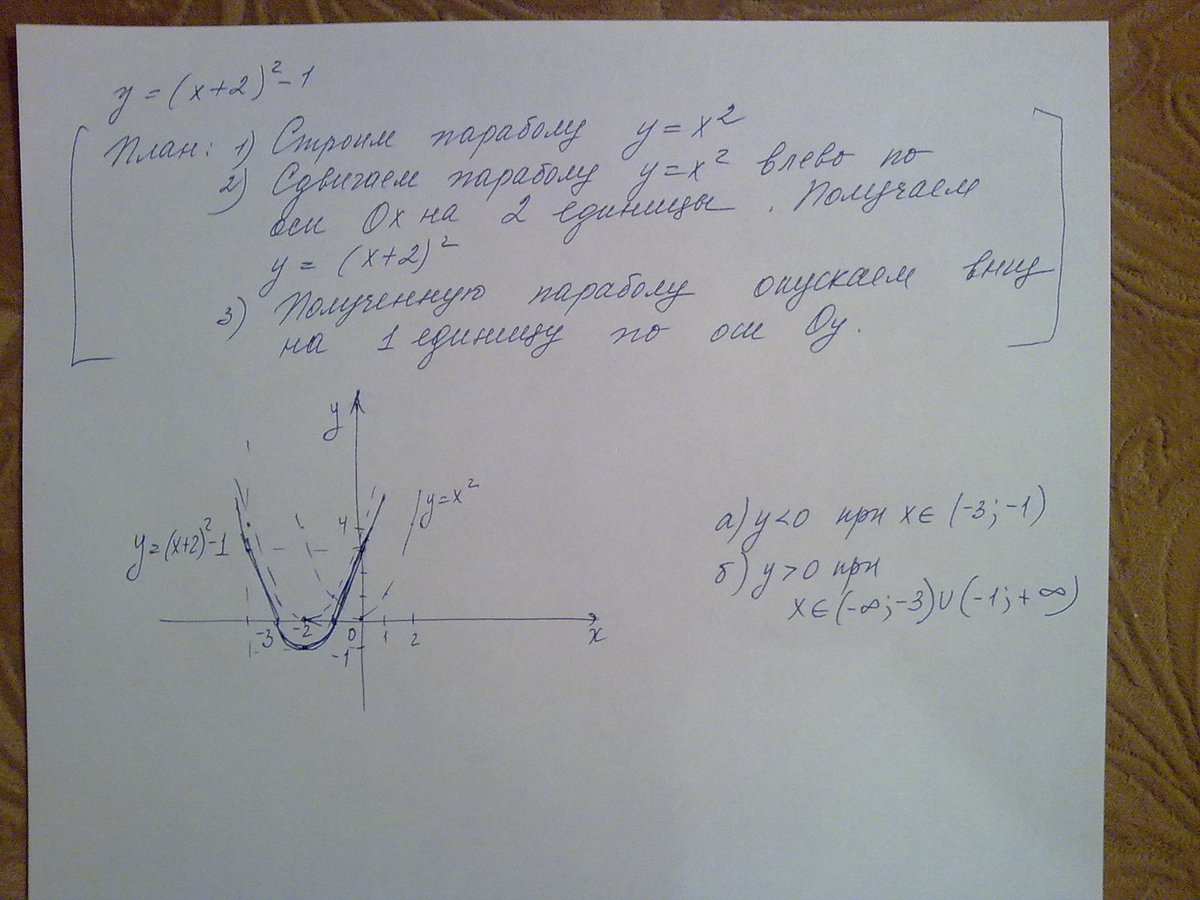 y = (x+2)² - 1
План: 1) Строим параболу y = x²
2) Сдвигаем параболу y = x² влево по
оси Ox на 2 единицы. Получаем
y = (x+2)²
3) Полученную параболу опускаем вниз
на 1 единицу по оси Oy.
y
4
y = x²
y = (x+2)² - 1
-3
-2
0
1
2
x
-1
а) y < 0 при x ∈ (-3; -1)
б) y > 0 при
x ∈ (-∞; -3) ∪ (-1; +∞)